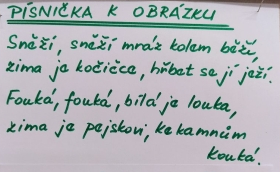 PÍSNIČKA K OBRÁZKU
Sněží, sněží mráz kolem běží,
zima je kočičce, hřbet se jí ježí.
Fouká, fouká, bílá je louka,
zima je pejskovi, ke kamnům
kouká.